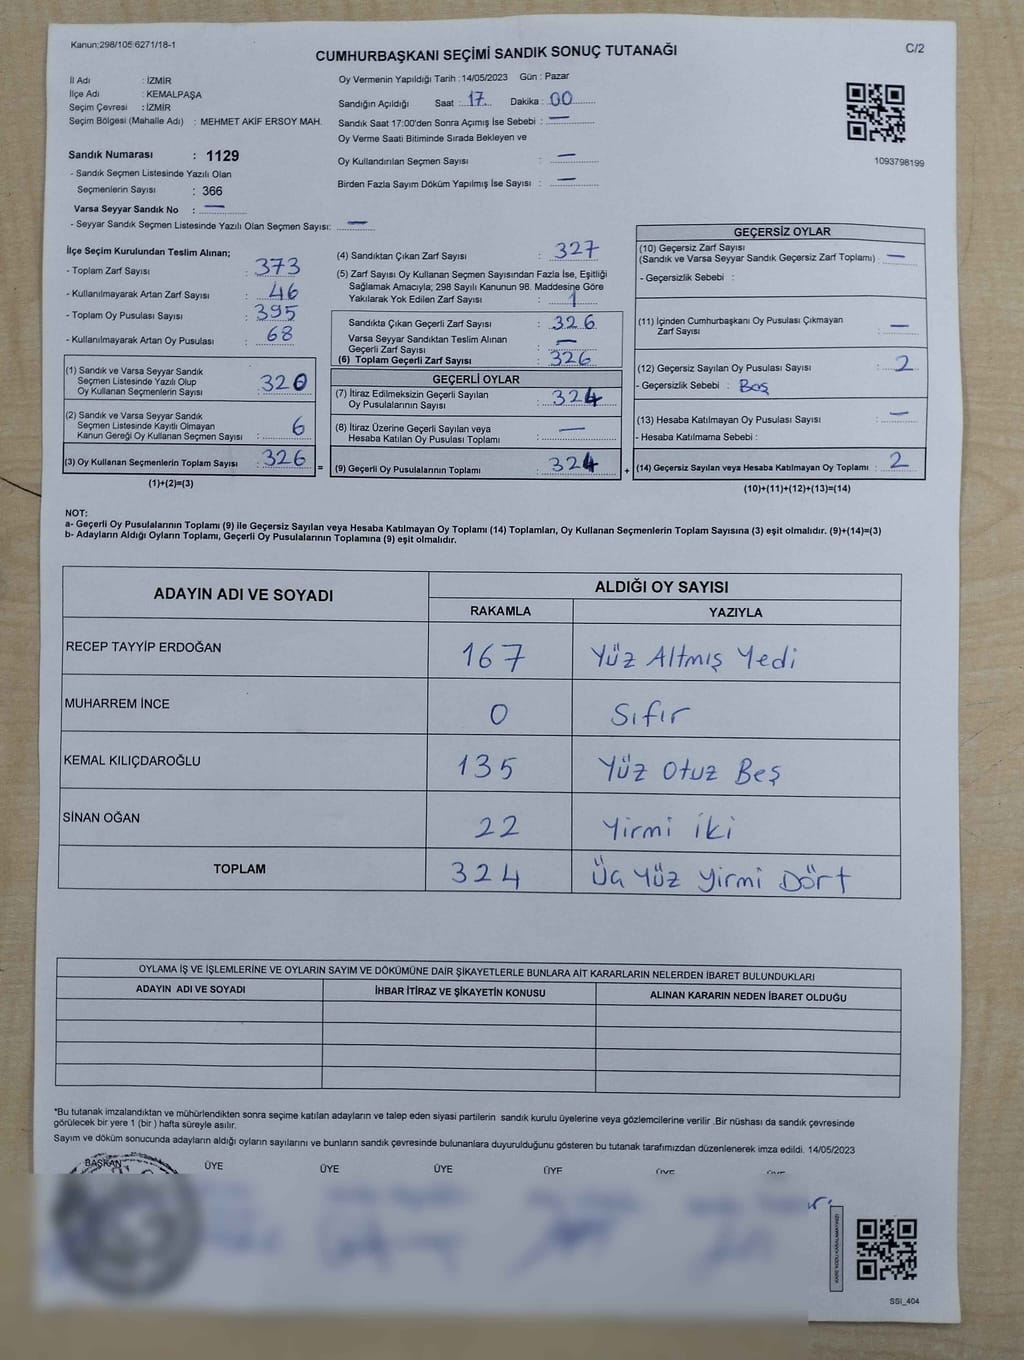 Kanun:298/105 6271/18-1
CUMHURBAŞKANI SEÇİMİ SANDIK SONUÇ TUTANAĞI
C/2
İl Adı : İZMİR
İlçe Adı : KEMALPAŞA
Seçim Çevresi : İZMİR
Seçim Bölgesi (Mahalle Adı) : MEHMET AKİF ERSOY MAH.
Sandık Numarası : 1129
- Sandık Seçmen Listesinde Yazılı Olan
Seçmenlerin Sayısı : 366
Varsa Seyyar Sandık No : —
- Seyyar Sandık Seçmen Listesinde Yazılı Olan Seçmen Sayısı: —
Oy Vermenin Yapıldığı Tarih : 14/05/2023 Gün : Pazar
Sandığın Açıldığı Saat : 17 Dakika : 00
Sandık Saat 17:00'den Sonra Açımış İse Sebebi : —
Oy Verme Saati Bitiminde Sırada Bekleyen ve
Oy Kullandırılan Seçmen Sayısı : —
Birden Fazla Sayım Döküm Yapılmış İse Sayısı : —
1093798199
İlçe Seçim Kurulundan Teslim Alınan;
- Toplam Zarf Sayısı : 373
- Kullanılmayarak Artan Zarf Sayısı : 46
- Toplam Oy Pusulası Sayısı : 395
- Kullanılmayarak Artan Oy Pusulası : 68
(1) Sandık ve Varsa Seyyar Sandık
Seçmen Listesinde Yazılı Olup
Oy Kullanan Seçmenlerin Sayısı : 320
(2) Sandık ve Varsa Seyyar Sandık
Seçmen Listesinde Kayıtlı Olmayan
Kanun Gereği Oy Kullanan Seçmen Sayısı : 6
(3) Oy Kullanan Seçmenlerin Toplam Sayısı : 326
(1)+(2)=(3)
=
(4) Sandıktan Çıkan Zarf Sayısı : 327
(5) Zarf Sayısı Oy Kullanan Seçmen Sayısından Fazla İse, Eşitliği
Sağlamak Amacıyla; 298 Sayılı Kanunun 98. Maddesine Göre
Yakılarak Yok Edilen Zarf Sayısı : 1
Sandıkta Çıkan Geçerli Zarf Sayısı : 326
Varsa Seyyar Sandıktan Teslim Alınan
Geçerli Zarf Sayısı : —
(6) Toplam Geçerli Zarf Sayısı : 326
GEÇERLİ OYLAR
(7) İtiraz Edilmeksizin Geçerli Sayılan
Oy Pusulalarının Sayısı : 324
(8) İtiraz Üzerine Geçerli Sayılan veya
Hesaba Katılan Oy Pusulası Toplamı : —
(9) Geçerli Oy Pusulalarının Toplamı : 324
+
GEÇERSİZ OYLAR
(10) Geçersiz Zarf Sayısı
(Sandık ve Varsa Seyyar Sandık Geçersiz Zarf Toplamı) : —
- Geçersizlik Sebebi :
(11) İçinden Cumhurbaşkanı Oy Pusulası Çıkmayan
Zarf Sayısı : —
(12) Geçersiz Sayılan Oy Pusulası Sayısı : 2
- Geçersizlik Sebebi : Boş
(13) Hesaba Katılmayan Oy Pusulası Sayısı : —
- Hesaba Katılmama Sebebi :
(14) Geçersiz Sayılan veya Hesaba Katılmayan Oy Toplamı : 2
(10)+(11)+(12)+(13)=(14)
NOT:
a- Geçerli Oy Pusulalarının Toplamı (9) ile Geçersiz Sayılan veya Hesaba Katılmayan Oy Toplamı (14) Toplamları, Oy Kullanan Seçmenlerin Toplam Sayısına (3) eşit olmalıdır. (9)+(14)=(3)
b- Adayların Aldığı Oyların Toplamı, Geçerli Oy Pusulalarının Toplamına (9) eşit olmalıdır.
ADAYIN ADI VE SOYADI ALDIĞI OY SAYISI
RAKAMLA YAZIYLA
RECEP TAYYİP ERDOĞAN 167 Yüz Altmış Yedi
MUHARREM İNCE 0 Sıfır
KEMAL KILIÇDAROĞLU 135 Yüz Otuz Beş
SİNAN OĞAN 22 Yirmi İki
TOPLAM 324 Üç Yüz Yirmi Dört
OYLAMA İŞ VE İŞLEMLERİNE VE OYLARIN SAYIM VE DÖKÜMÜNE DAİR ŞİKAYETLERLE BUNLARA AİT KARARLARIN NELERDEN İBARET BULUNDUKLARI
ADAYIN ADI VE SOYADI İHBAR İTİRAZ VE ŞİKAYETİN KONUSU ALINAN KARARIN NEDEN İBARET OLDUĞU
*Bu tutanak imzalandıktan ve mühürlendikten sonra seçime katılan adayların ve talep eden siyasi partilerin sandık kurulu üyelerine veya gözlemcilerine verilir .Bir nüshası da sandık çevresinde
görülecek bir yere 1 (bir ) hafta süreyle asılır.
Sayım ve döküm sonucunda adayların aldığı oyların sayılarını ve bunların sandık çevresinde bulunanlara duyurulduğunu gösteren bu tutanak tarafımızdan düzenlenerek imza edildi. 14/05/2023
BAŞKAN ÜYE ÜYE ÜYE ÜYE ÜYE ÜYE
KARE KODU KARALAMAYINIZ!
SSI_404